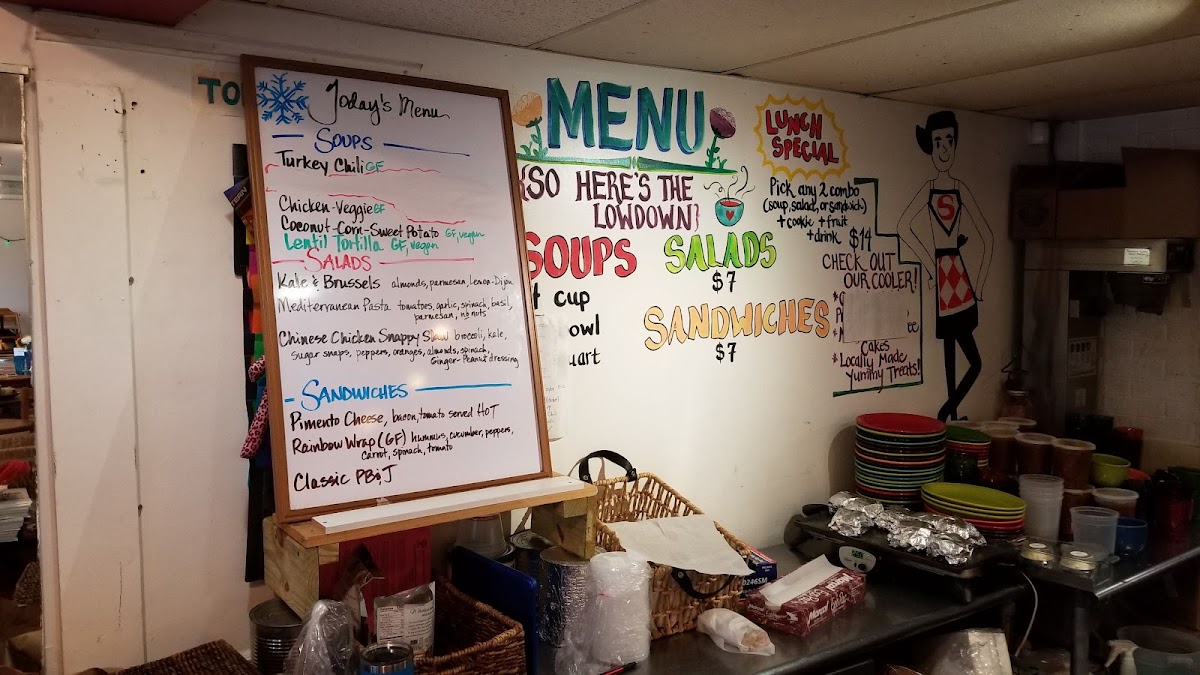 TO
Today's Menu
SOUPS
Turkey Chili GF
Chicken-Veggie GF
Coconut-Corn-Sweet Potato GF, vegan
Lentil Tortilla GF, vegan
SALADS
Kale & Brussels almonds, parmesan, Lemon-Dijon
Mediterranean Pasta tomatoes, garlic, spinach, basil,
parmesan, no nuts
Chinese Chicken Snappy Slaw broccoli, kale,
sugar snaps, peppers, oranges, almonds, spinach,
Ginger-Peanut dressing
SANDWICHES
Pimento Cheese, bacon, tomato served HOT
Rainbow Wrap (GF) hummus, cucumber, peppers,
carrot, spinach, tomato
Classic PB&J
MENU
(SO HERE'S THE
LOWDOWN)
SOUPS
cup
owl
uart
SALADS
$7
SANDWICHES
$7
LUNCH
SPECIAL
Pick any 2 combo
(soup, salad, or sandwich)
+ cookie + fruit
+ drink $14
CHECK OUT
OUR COOLER!
Cakes
* Locally Made
Yummy Treats!
S